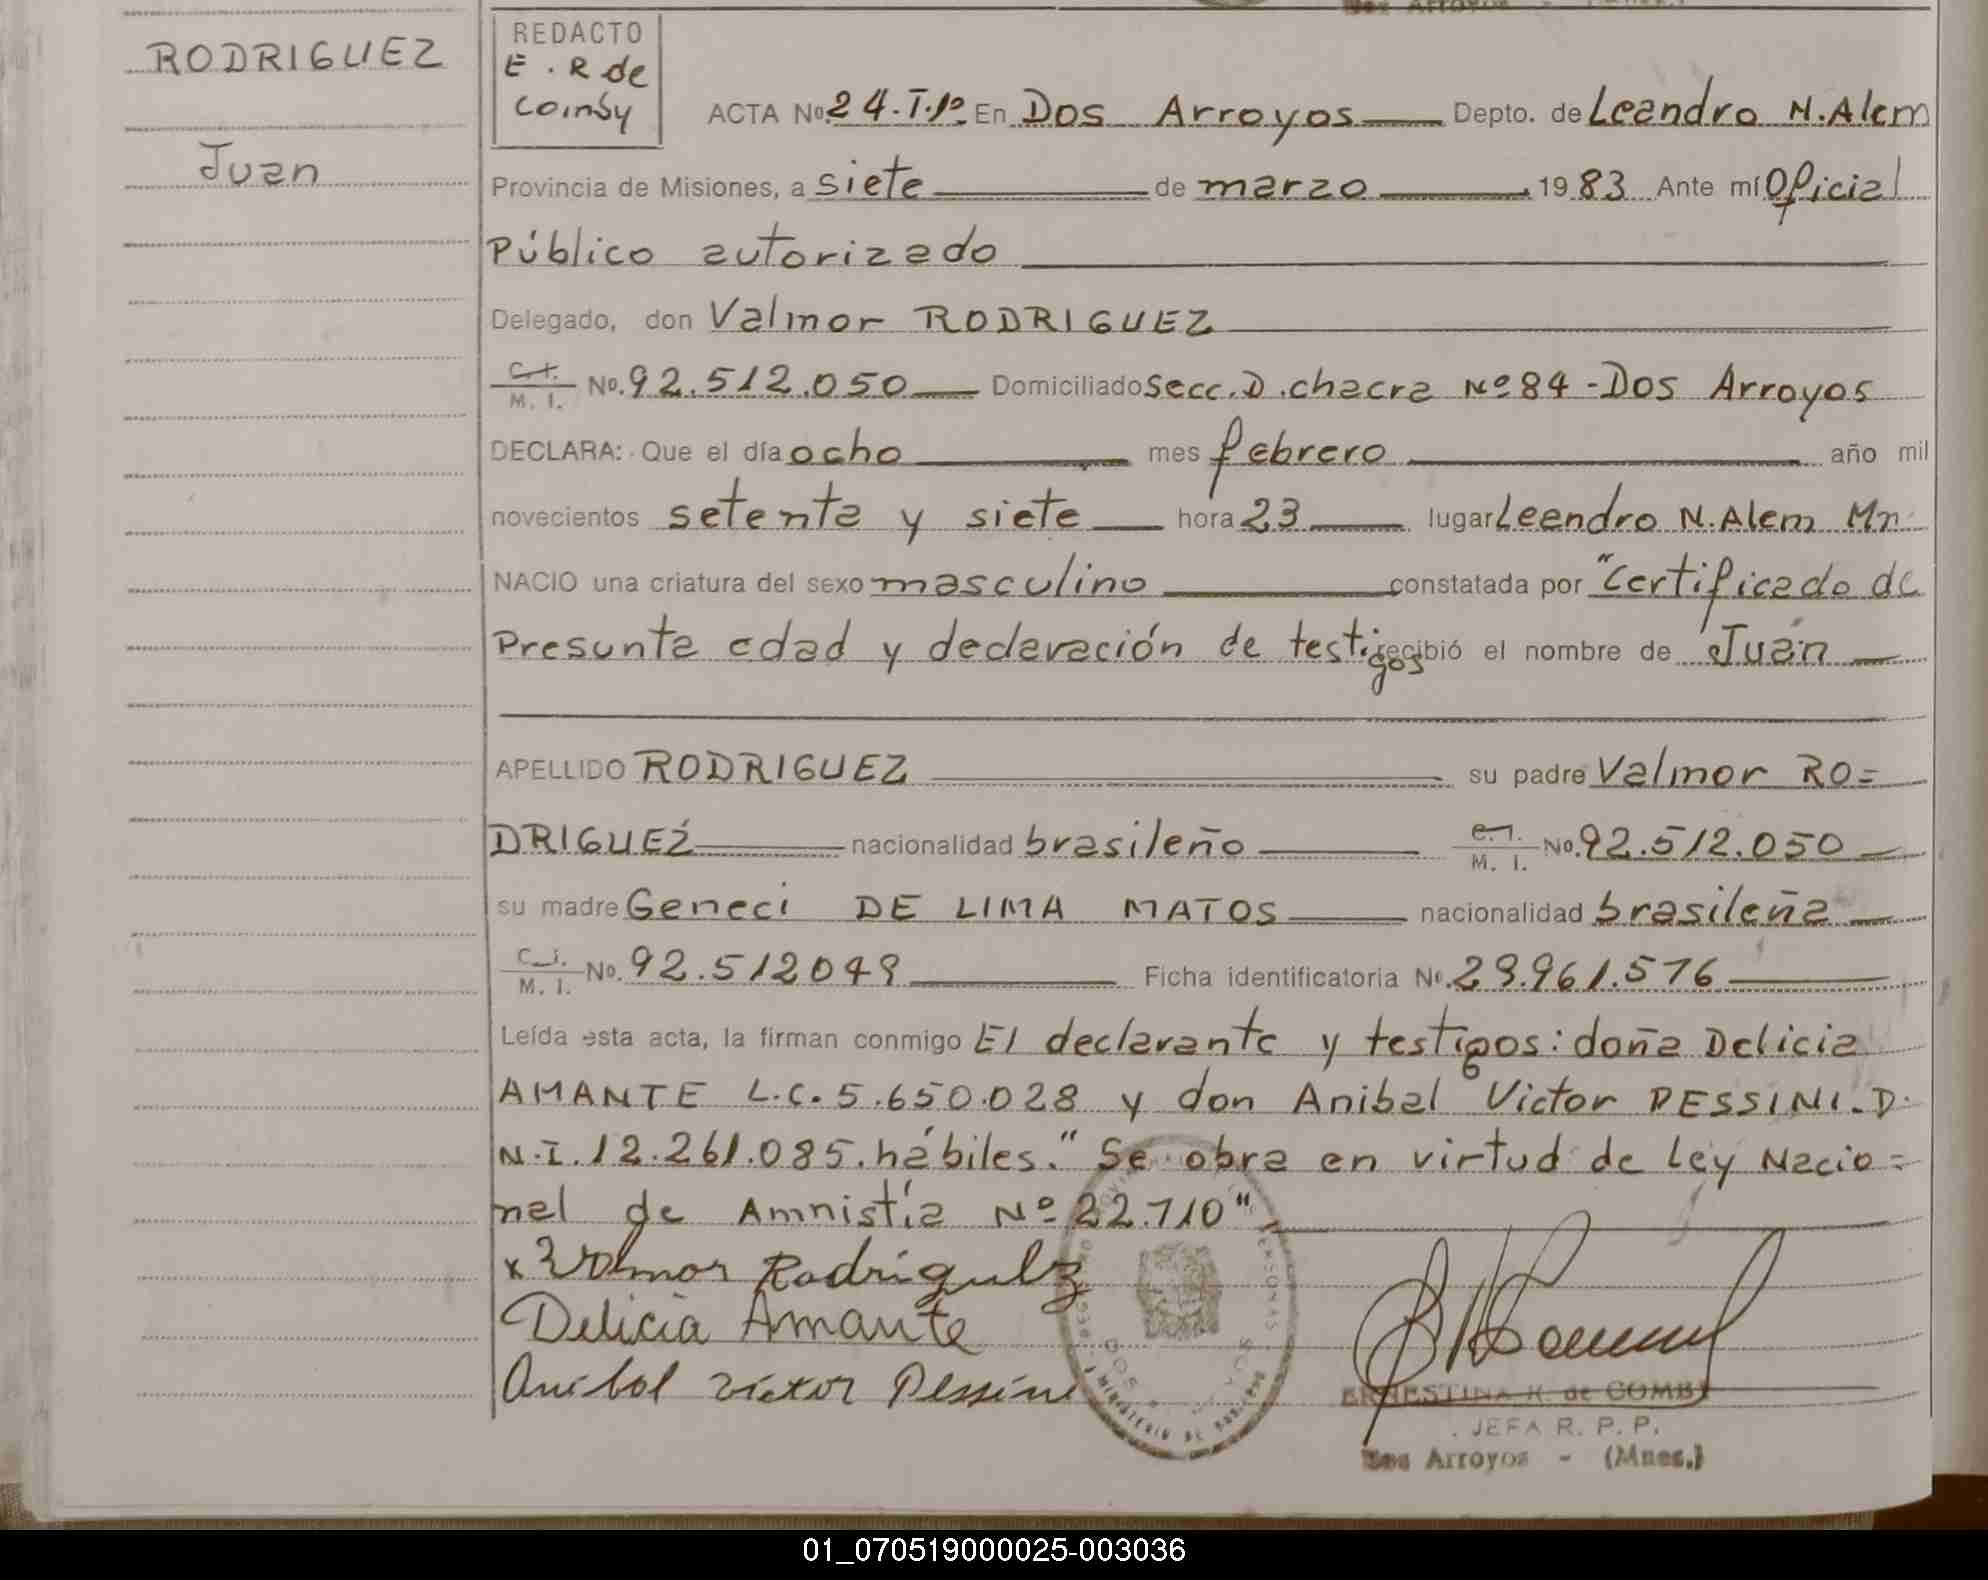 RODRIGUEZ
Juan
REDACTO
E. R de
Comby
ACTA No 24.T.1º En Dos Arroyos Depto. de Leandro N. Alem
Provincia de Misiones, a siete de marzo 1983 Ante mí Oficial
Público autorizado
Delegado, don Valmor RODRIGUEZ
C.I. M. I. No. 92.512.050 Domiciliado Secc. D. chacra Nº 84 - Dos Arroyos
DECLARA: Que el día ocho mes febrero año mil
novecientos setenta y siete hora 23 lugar Leandro N. Alem Mn
NACIO una criatura del sexo masculino constatada por "Certificado de
Presunta edad y declaración de testigos recibió el nombre de Juan
APELLIDO RODRIGUEZ su padre Valmor RO=
DRIGUEZ nacionalidad brasileño M. I. No. 92.512.050
su madre Geneci DE LIMA MATOS nacionalidad brasileña
C.I. M. I. No. 92.512049 Ficha identificatoria No. 29.961.576
Leída esta acta, la firman conmigo El declarante y testigos: doña Delicia
AMANTE L.C. 5.650.028 y don Anibal Victor PESSINI. D.
N.I. 12.261.085. hábiles." Se obra en virtud de Ley Nacio=
nal de Amnistía Nº 22.710"
x Valmor Rodriguez
Delicia Amante
Anibal Victor Pessini
ERNESTINA R. de COMBY
JEFA R. P. P.
Dos Arroyos - (Mnes.)
01_070519000025-003036